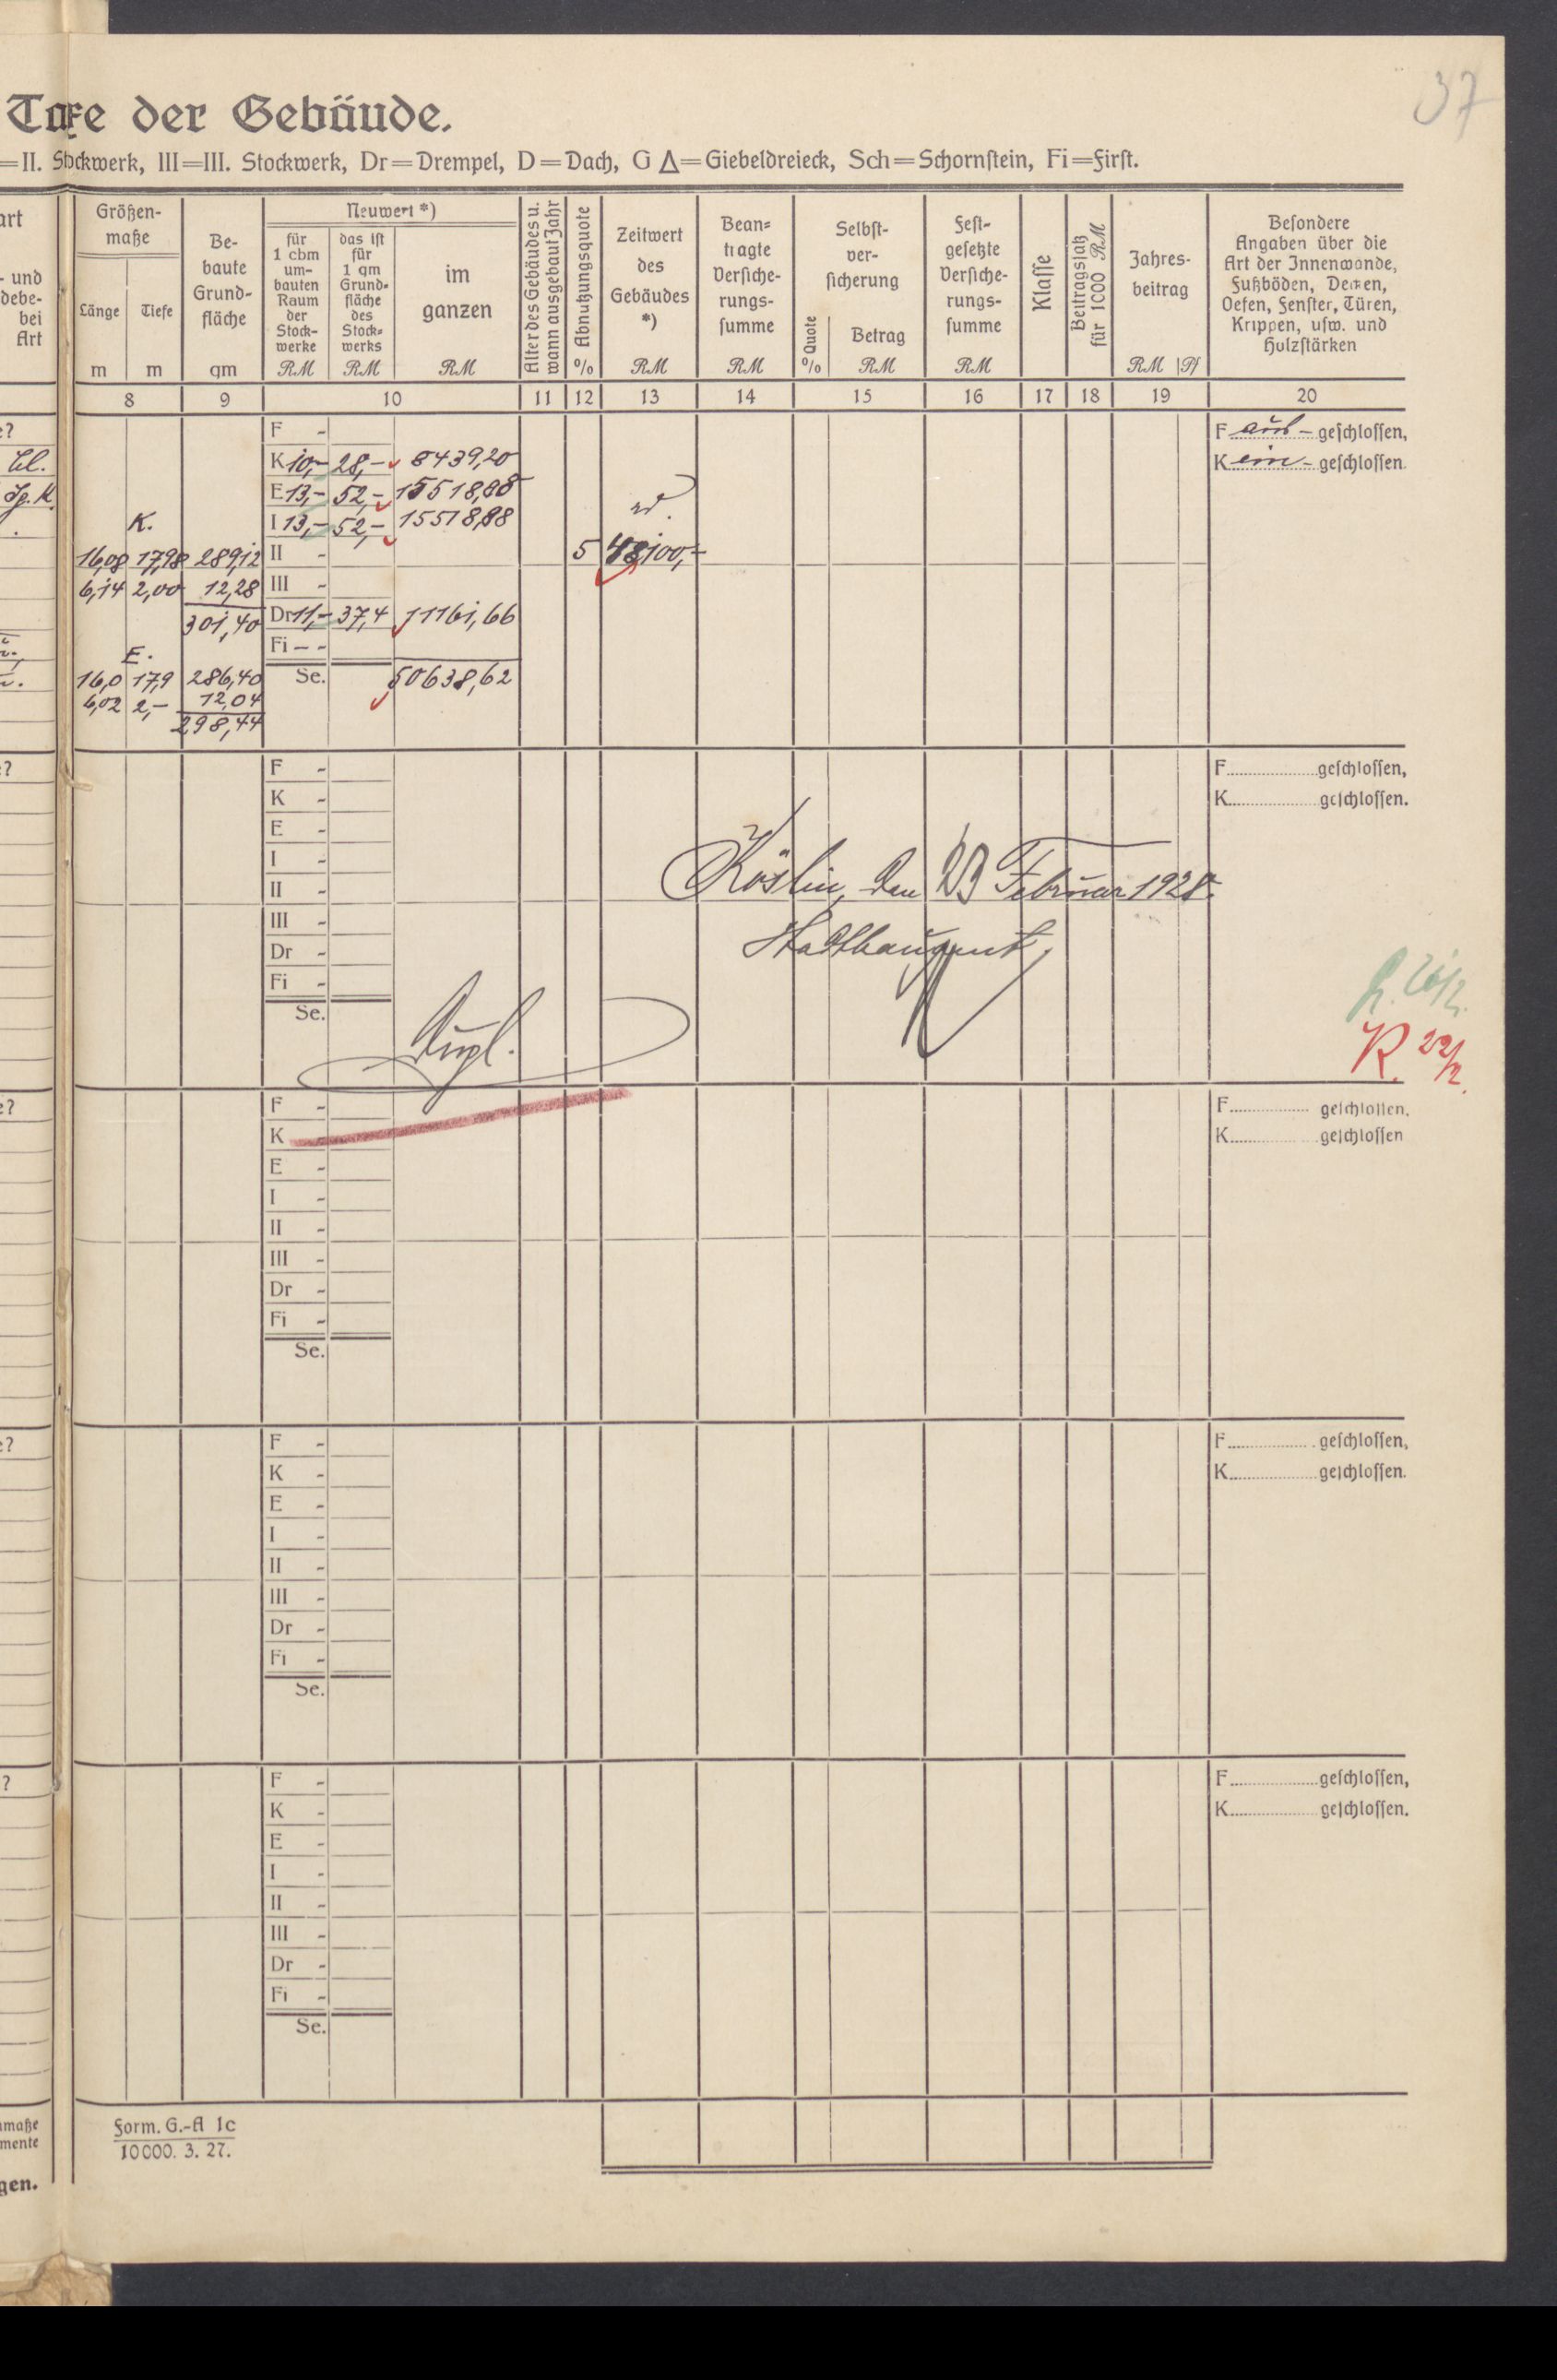 37
Taxe der Gebäude.
=II. Stockwerk, III=III. Stockwerk, Dr=Drempel, D=Dach, G △=Giebeldreieck, Sch=Schornstein, Fi=First.
art
- und
debe-
bei
Art
Größen-
maße
Länge
m
Tiefe
m
Be-
baute
Grund-
fläche
qm
Neuwert *)
für
1 cbm
um-
bauten
Raum
der
Stock-
werke
RM
das ist
für
1 qm
Grund-
fläche
des
Stock-
werks
RM
im
ganzen
RM
Alter des Gebäudes u.
wann ausgebaut Jahr
Abnutzungsquote
%
Zeitwert
des
Gebäudes
*)
RM
Bean-
tragte
Versiche-
rungs-
summe
RM
Selbst-
ver-
sicherung
% Quote
Betrag
RM
Fest-
gesetzte
Versiche-
rungs-
summe
RM
Klasse
Beitragssatz
für 1000 RM
Jahres-
beitrag
RM | Pf
Besondere
Angaben über die
Art der Innenwände,
Fußböden, Decken,
Oefen, Fenster, Türen,
Krippen, usw. und
Holzstärken
8 9 10 11 12 13 14 15 16 17 18 19 20
e?
F -
F aus-geschlossen,
K 10,- 28,- 8439,20
K ein-geschlossen.
E 13,- 52,- 15518,88
K.
I 13,- 52,- 15518,88
rd.
16,08 17,98 289,12
II -
5 48100,-
6,14 2,00 12,28
III -
301,40
Dr 11,- 37,4 11161,66
Fi - -
E.
16,0 17,9 286,40
Se. 50638,62
6,02 2,- 12,04
298,44
e?
F -
F geschlossen,
K -
K geschlossen.
E -
I -
II -
Köslin, den 23 Februar 1928.
III -
Dr -
Stadtbauamt.
Fi -
Se.
R. 22/2.
e?
F -
F geschlossen.
K -
K geschlossen
E -
I -
II -
III -
Dr -
Fi -
Se.
e?
F -
F geschlossen,
K -
K geschlossen.
E -
I -
II -
III -
Dr -
Fi -
Se.
?
F -
F geschlossen,
K -
K geschlossen.
E -
I -
II -
III -
Dr -
Fi -
Se.
nmaße
mente
gen.
Form. G.-A 1c
10000. 3. 27.